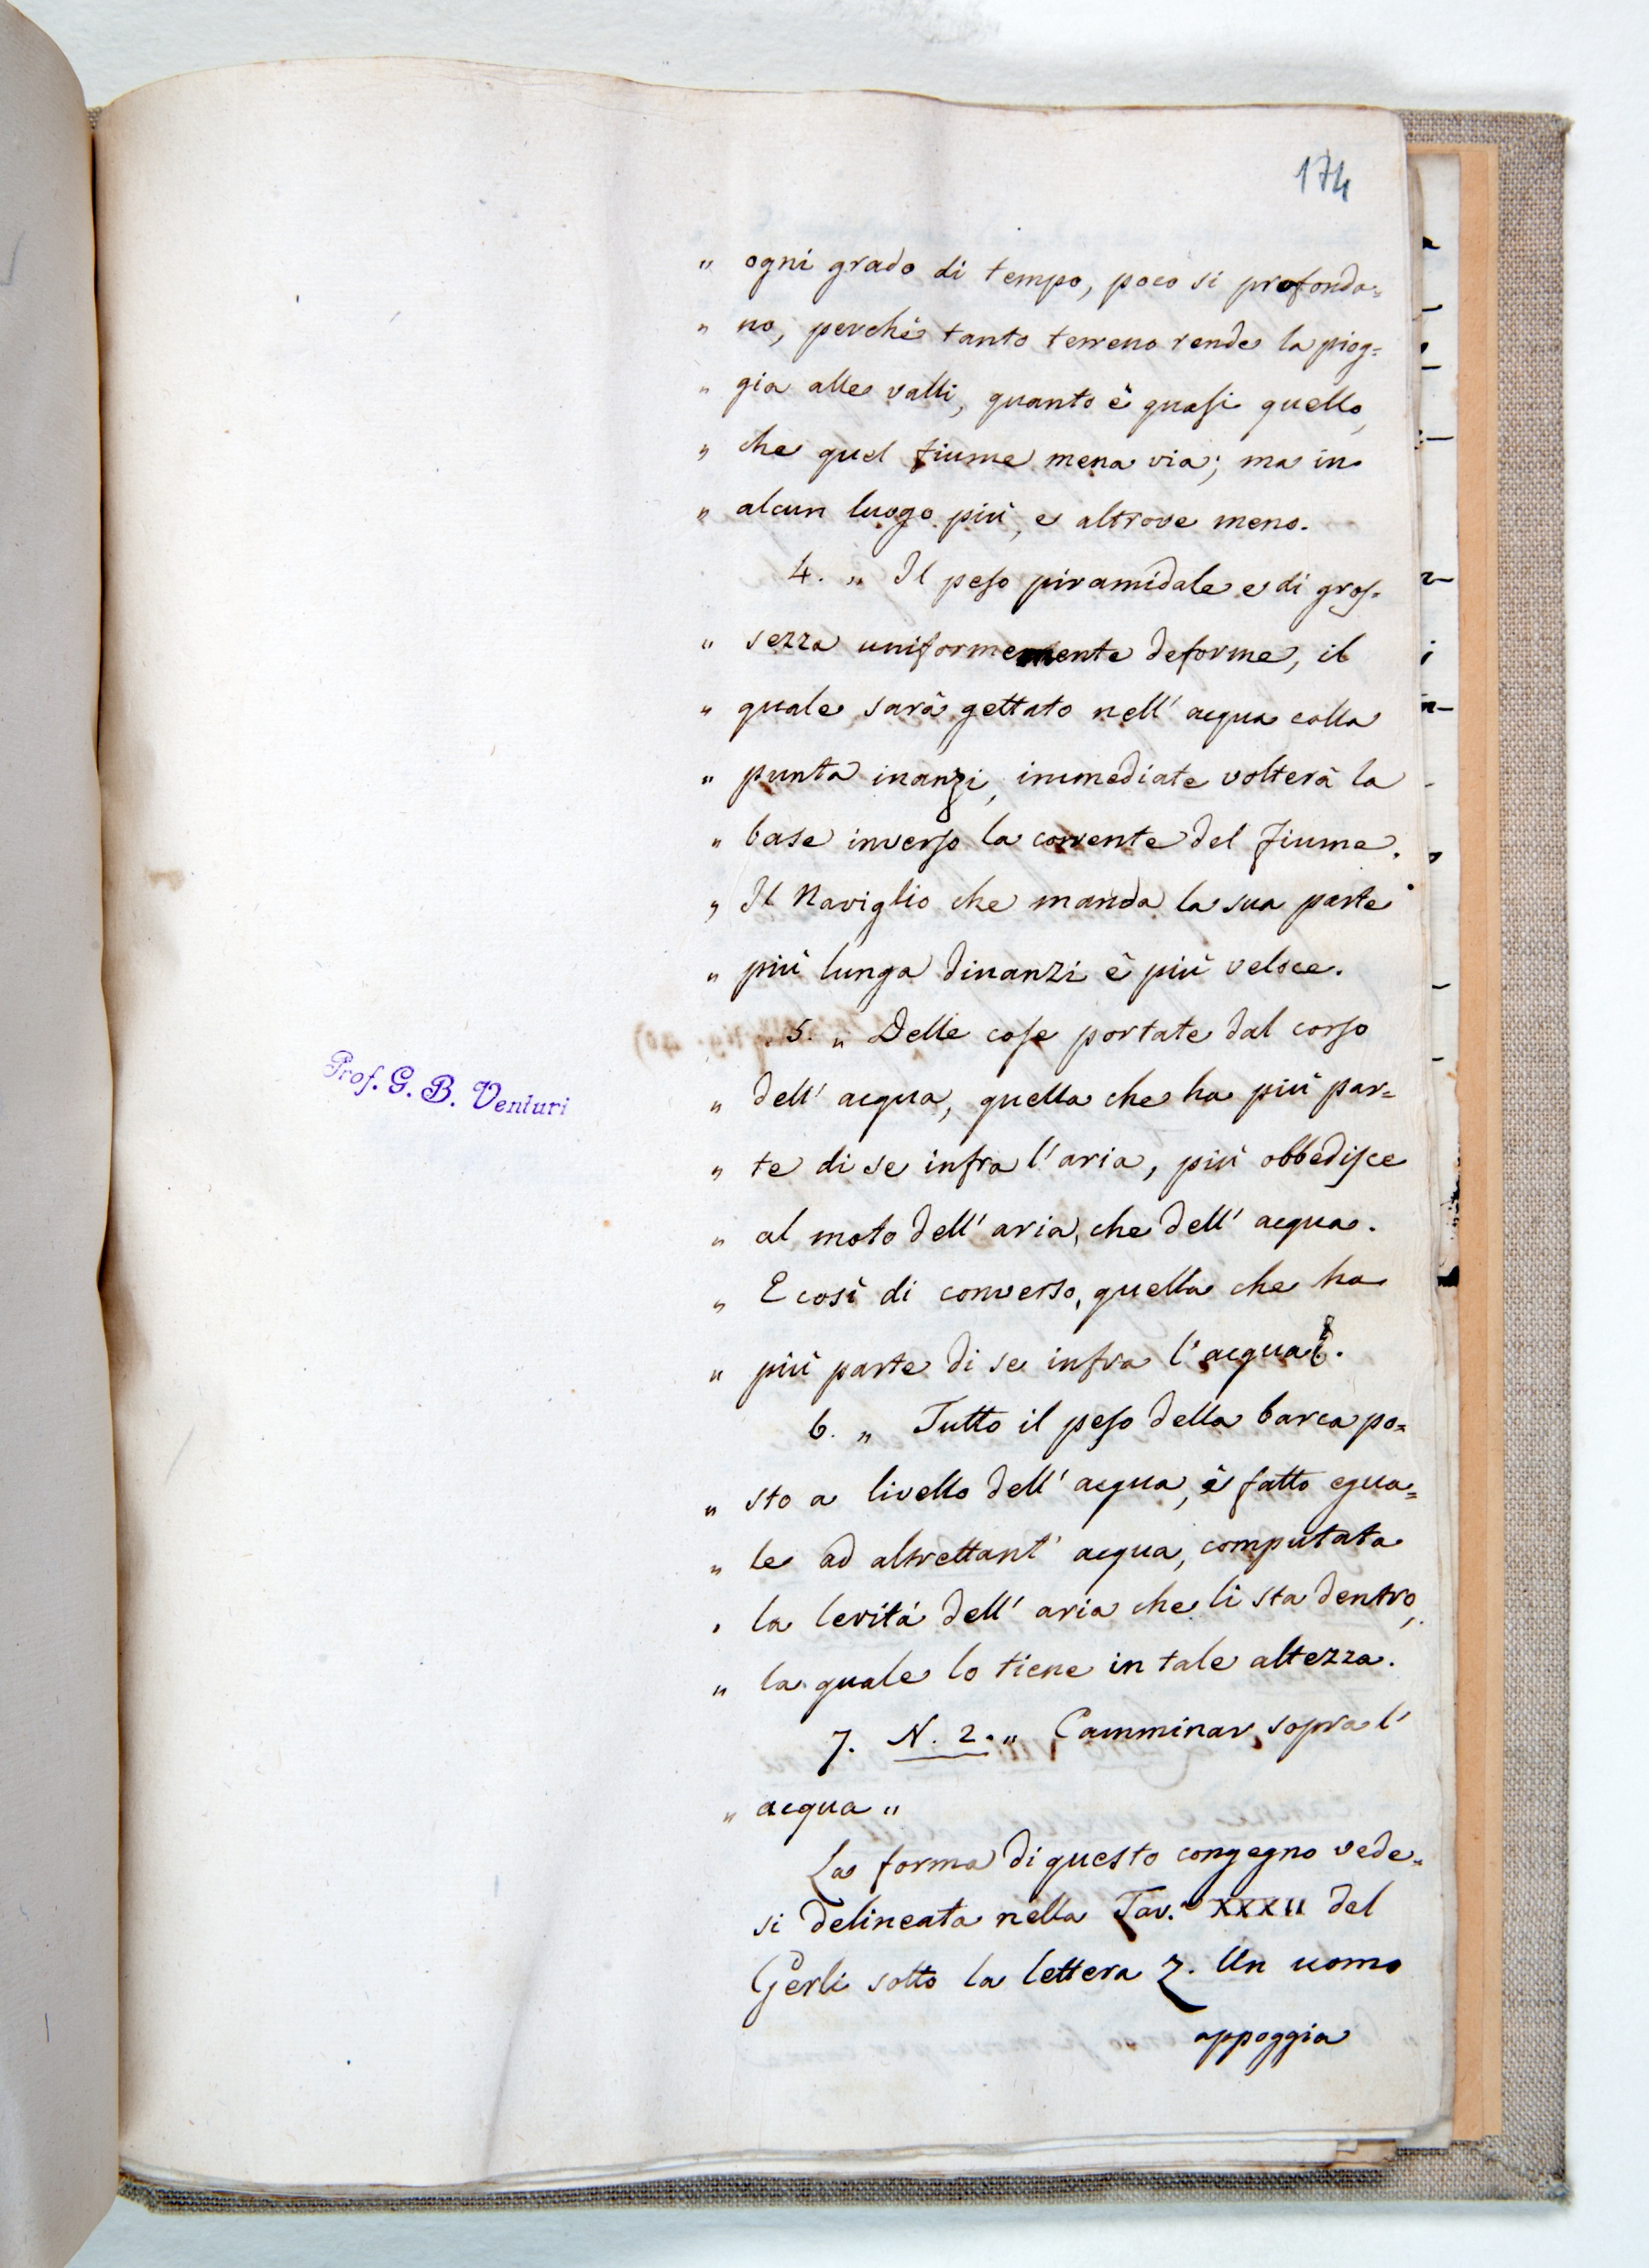 174
" ogni grado di tempo, poco si profonda=
" no, perchè tanto terreno rende la piog=
" gia alle valli, quanto è quasi quello,
" che quel fiume mena via; ma in
" alcun luogo più, e altrove meno.
4. " Il peso piramidale e di gros=
" sezza uniformemente deforme, il
" quale sarà gettato nell' acqua colla
" punta inanzi, immediate volterà la
" base inverso la corrente del fiume.
" Il Naviglio che manda la sua parte
" più lunga dinanzi è più veloce.
5. " Delle cose portate dal corso
Prof. G. B. Venturi
" dell' acqua, quella che ha più par=
" te di se infra l'aria, più obbedisce
" al moto dell' aria, che dell' acqua.
" E così di converso, quella che ha
" più parte di se infra l'acqua.
6. " Tutto il peso della barca po=
" sto a livello dell' acqua, è fatto egua=
" le ad altrettant' acqua, computata
" la levità dell' aria che li sta dentro,
" la quale lo tiene in tale altezza.
7. N. 2. " Camminar sopra l'
" acqua "
La forma di questo congegno vede=
si delineata nella Tav.ª XXXII del
Gerli sotto la lettera Z. Un uomo
appoggia